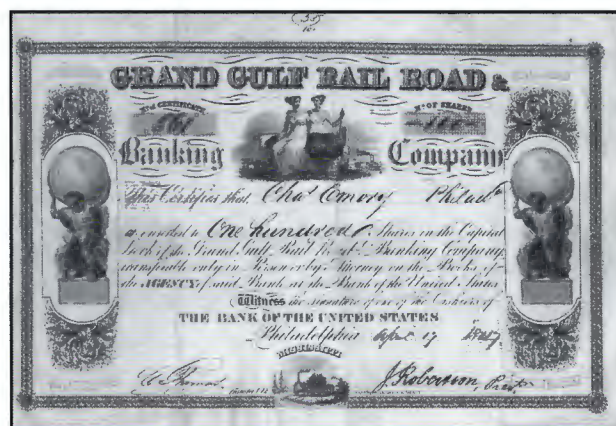 GRAND GULF RAIL ROAD &
No. of CERTIFICATE
No. OF SHARES
Banking Company
This Certifies that Chas Emory Philada
is entitled to One hundred Shares in the Capital
Stock of the Grand Gulf Rail Road & Banking Company,
transferable only in Person or by Attorney on the Books of
the AGENCY of said Bank at the Bank of the United States
Witness the signature of one of the Cashiers of
THE BANK OF THE UNITED STATES
Philadelphia April 17
MISSISSIPPI
Thomas J. Robertson, Prest